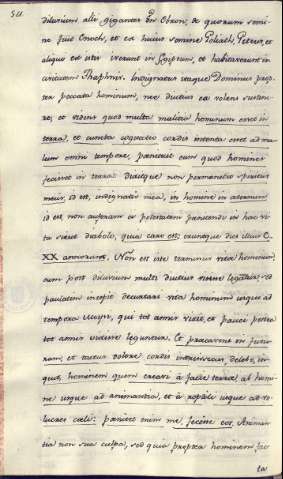 511.
diluvium alii gigantes in Ebron; de quorum semi-
ne fuit Enoch, et ex huius semine Goliath, Getreus, et
aliqui ex istis iverunt in Egiptum, et habitaverunt in
civitatem Thaphnis. Indignatus itaque Dominus prop-
ter peccata hominum, nec diutius ea volens sustine-
re; et videns quod multa malitia hominum esset in
terra, et cuncta cogitatio cordis intenta esset ad ma-
lum omni tempore, penituit eum quod hominem
fecisset in terra: Dixitque non permanebit spiritus
meus, id est, indignatio mea, in homine in aeternum
id est non auferam ei potestatem penitendi in hac vi-
ta sicut diabolo, quia caro est; eruntque dies illius C.
XX annorum. Non est iste terminus vitae hominum
cum post diluvium multi diutius vixisse legantur, sed
paulatim incepit decurtari vita hominum usque ad
tempora Moysi, qui tot annis vixit, et pauci postea
tot annis vixisse leguntur. Et praecavens in futu-
rum, et tactus dolore cordis intrinsecus, delebo, in-
quit, hominem quem creavi à facie terrae ab homi-
ne usque ad animantia, et à reptili usque ad vo-
lucres coeli: paenitet enim me fecisse eos. Animan-
tia non sua culpa, sed quia propter hominem fac-
ta